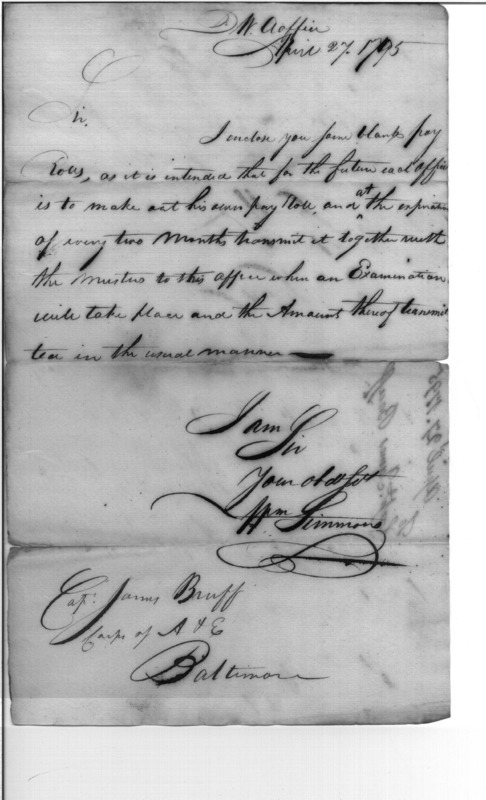 D W. Aoffice
April 27. 1795
Sir,
I enclose you some blank pay
Rolls, as it is intended that for the future each officer
is to make out his own pay Roll, and at the expiration
of every two Months transmit it together with
the musters to this office when an Examination
will take place and the Amount thereof transmit
ted in the usual manner —
I am
Sir
Your obdt Svt
Wm Simmons
Capt. James Bruff
Corps of A & E
Baltimore
April 27. 1795